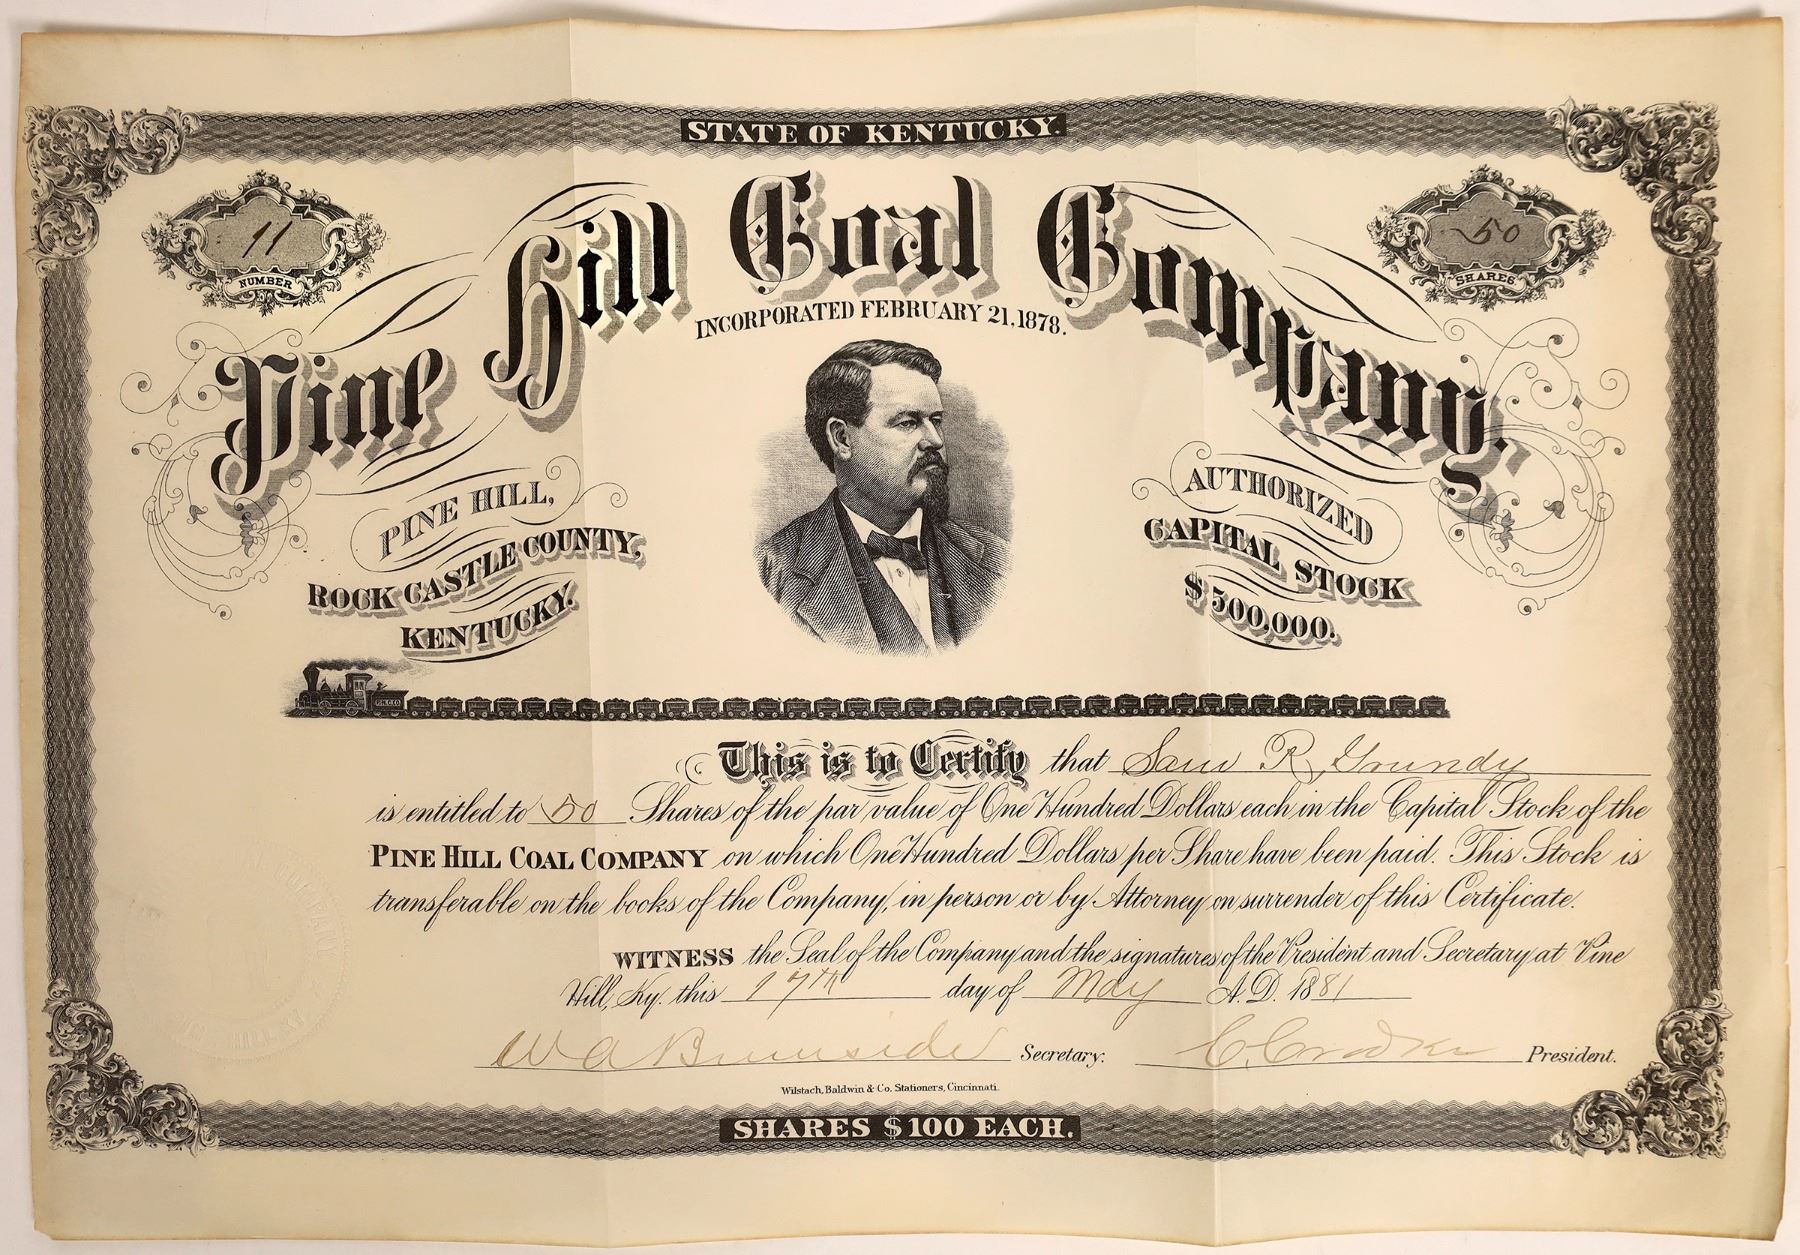 STATE OF KENTUCKY.
11
NUMBER
50
SHARES.
Pine Hill Coal Company.
INCORPORATED FEBRUARY 21, 1878.
PINE HILL,
ROCK CASTLE COUNTY,
KENTUCKY.
AUTHORIZED
CAPITAL STOCK
$500,000.
This is to Certify that Sam R. Grundy
is entitled to 50 Shares of the par value of One Hundred Dollars each in the Capital Stock of the
PINE HILL COAL COMPANY on which One Hundred Dollars per Share have been paid. This Stock is
transferable on the books of the Company, in person or by Attorney on surrender of this Certificate.
WITNESS the Seal of the Company and the signatures of the President and Secretary at Pine
Hill, Ky. this 17th day of May A.D. 1881
W A Burnside Secretary. President.
Wilstach, Baldwin & Co. Stationers, Cincinnati.
SHARES $100 EACH.